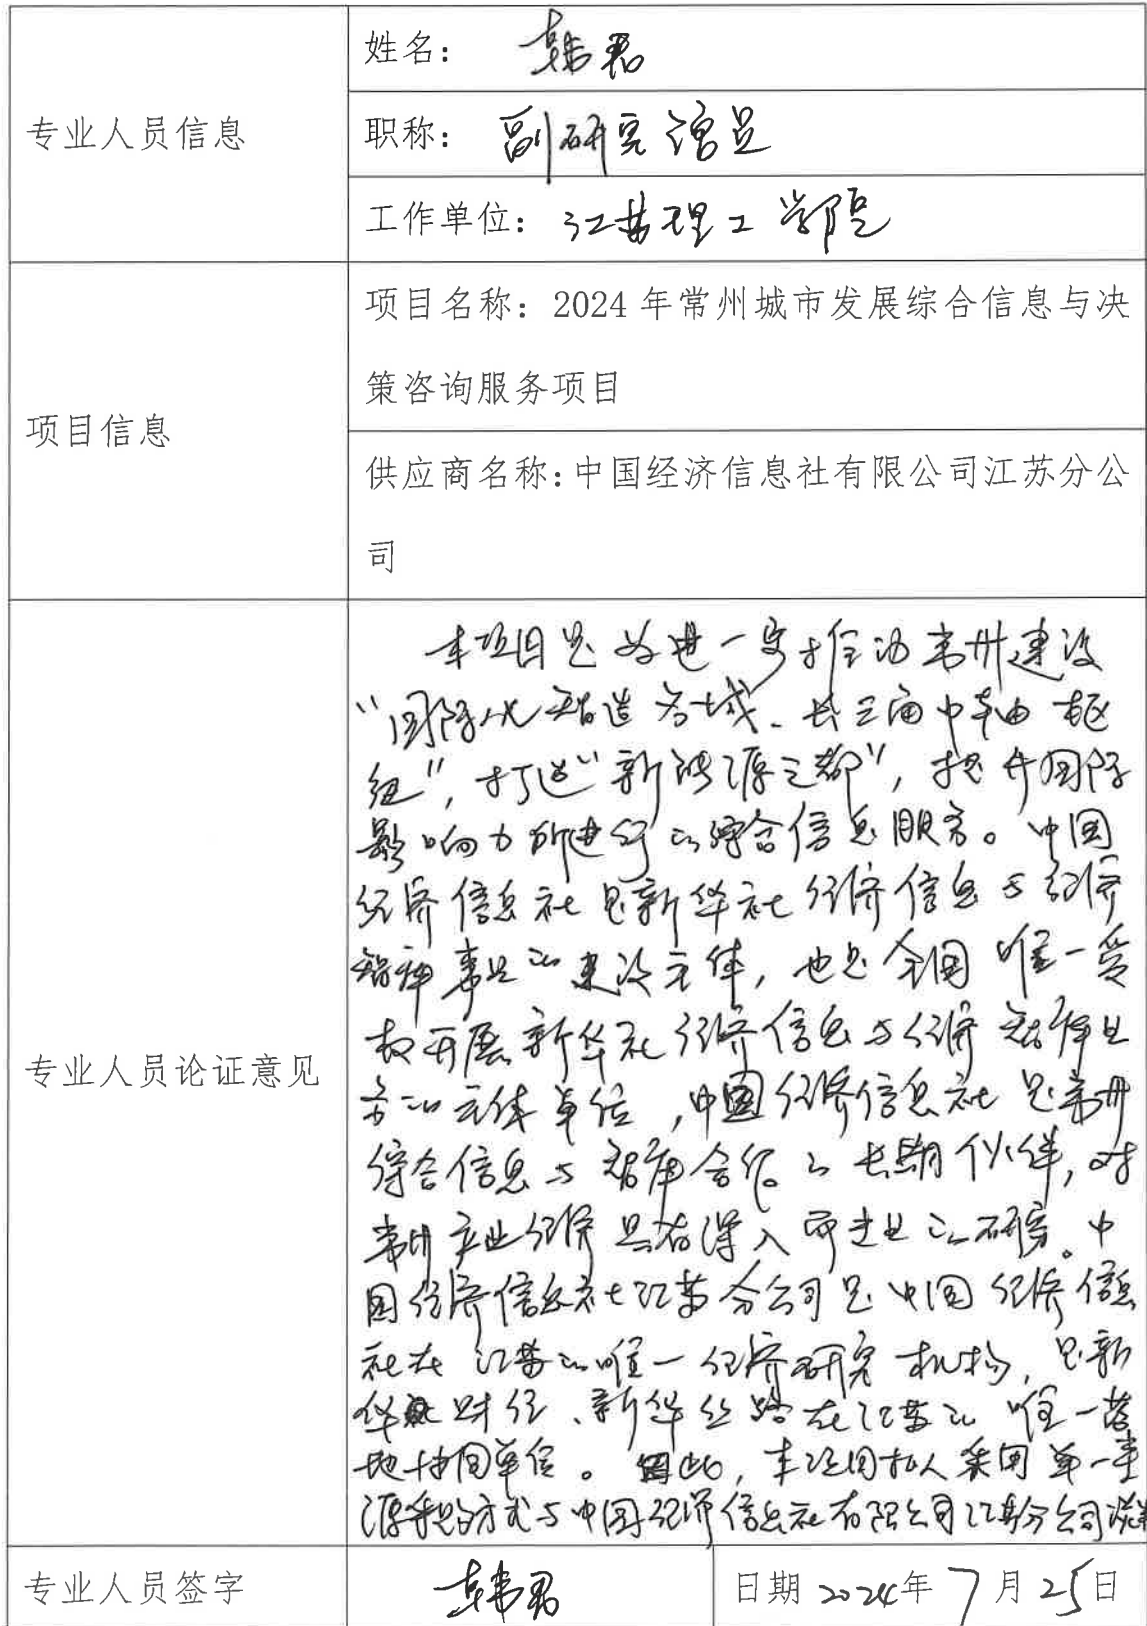 专业人员信息
姓名：韩君
职称：副研究馆员
工作单位：江苏理工学院
项目信息
项目名称：2024年常州城市发展综合信息与决
策咨询服务项目
供应商名称：中国经济信息社有限公司江苏分公
司
专业人员论证意见
本项目是为进一步推动常州建设
“国际化智造名城、长三角中轴枢
纽”，打造“新能源之都”，提升国际
影响力所进行的综合信息服务。中国
经济信息社是新华社经济信息与经济
智库事业的建设主体，也是全国唯一受
权开展新华社经济信息与经济智库业
务的主体单位，中国经济信息社是常州
综合信息与智库合作的长期伙伴，对
常州产业经济具有深入而专业的研究。中
国经济信息社江苏分公司是中国经济信息
社在江苏的唯一经济研究机构，是新
华财经、新华丝路在江苏的唯一落
地协同单位。因此，本项目拟采用单一来
源采购方式与中国经济信息社有限公司江苏分公司
专业人员签字
韩君
日期2024年7月25日